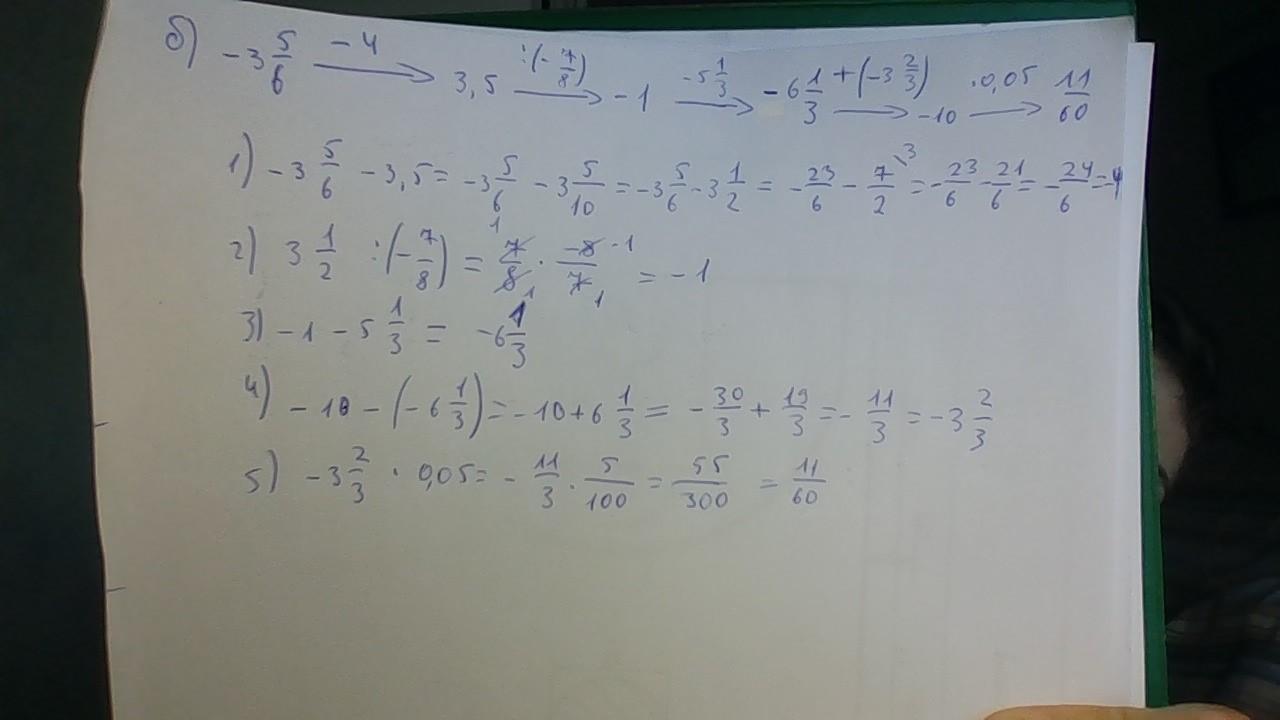 б) -3 5/6 —(-4)→ 3,5 —(:(-7/8))→ -1 —(-5 1/3)→ -6 1/3 —(+(-3 2/3))→ -10 —(·0,05)→ 11/60
1) -3 5/6 - 3,5 = -3 5/6 - 3 5/10 = -3 5/6 - 3 1/2 = -23/6 - 7/2 \3 = -23/6 - 21/6 = -24/6 = 4
2) 3 1/2 : (-7/8) = 7/8 · -8/7 = -1
3) -1 - 5 1/3 = -6 1/3
4) -10 - (-6 1/3) = -10 + 6 1/3 = -30/3 + 19/3 = -11/3 = -3 2/3
5) -3 2/3 · 0,05 = -11/3 · 5/100 = 55/300 = 11/60